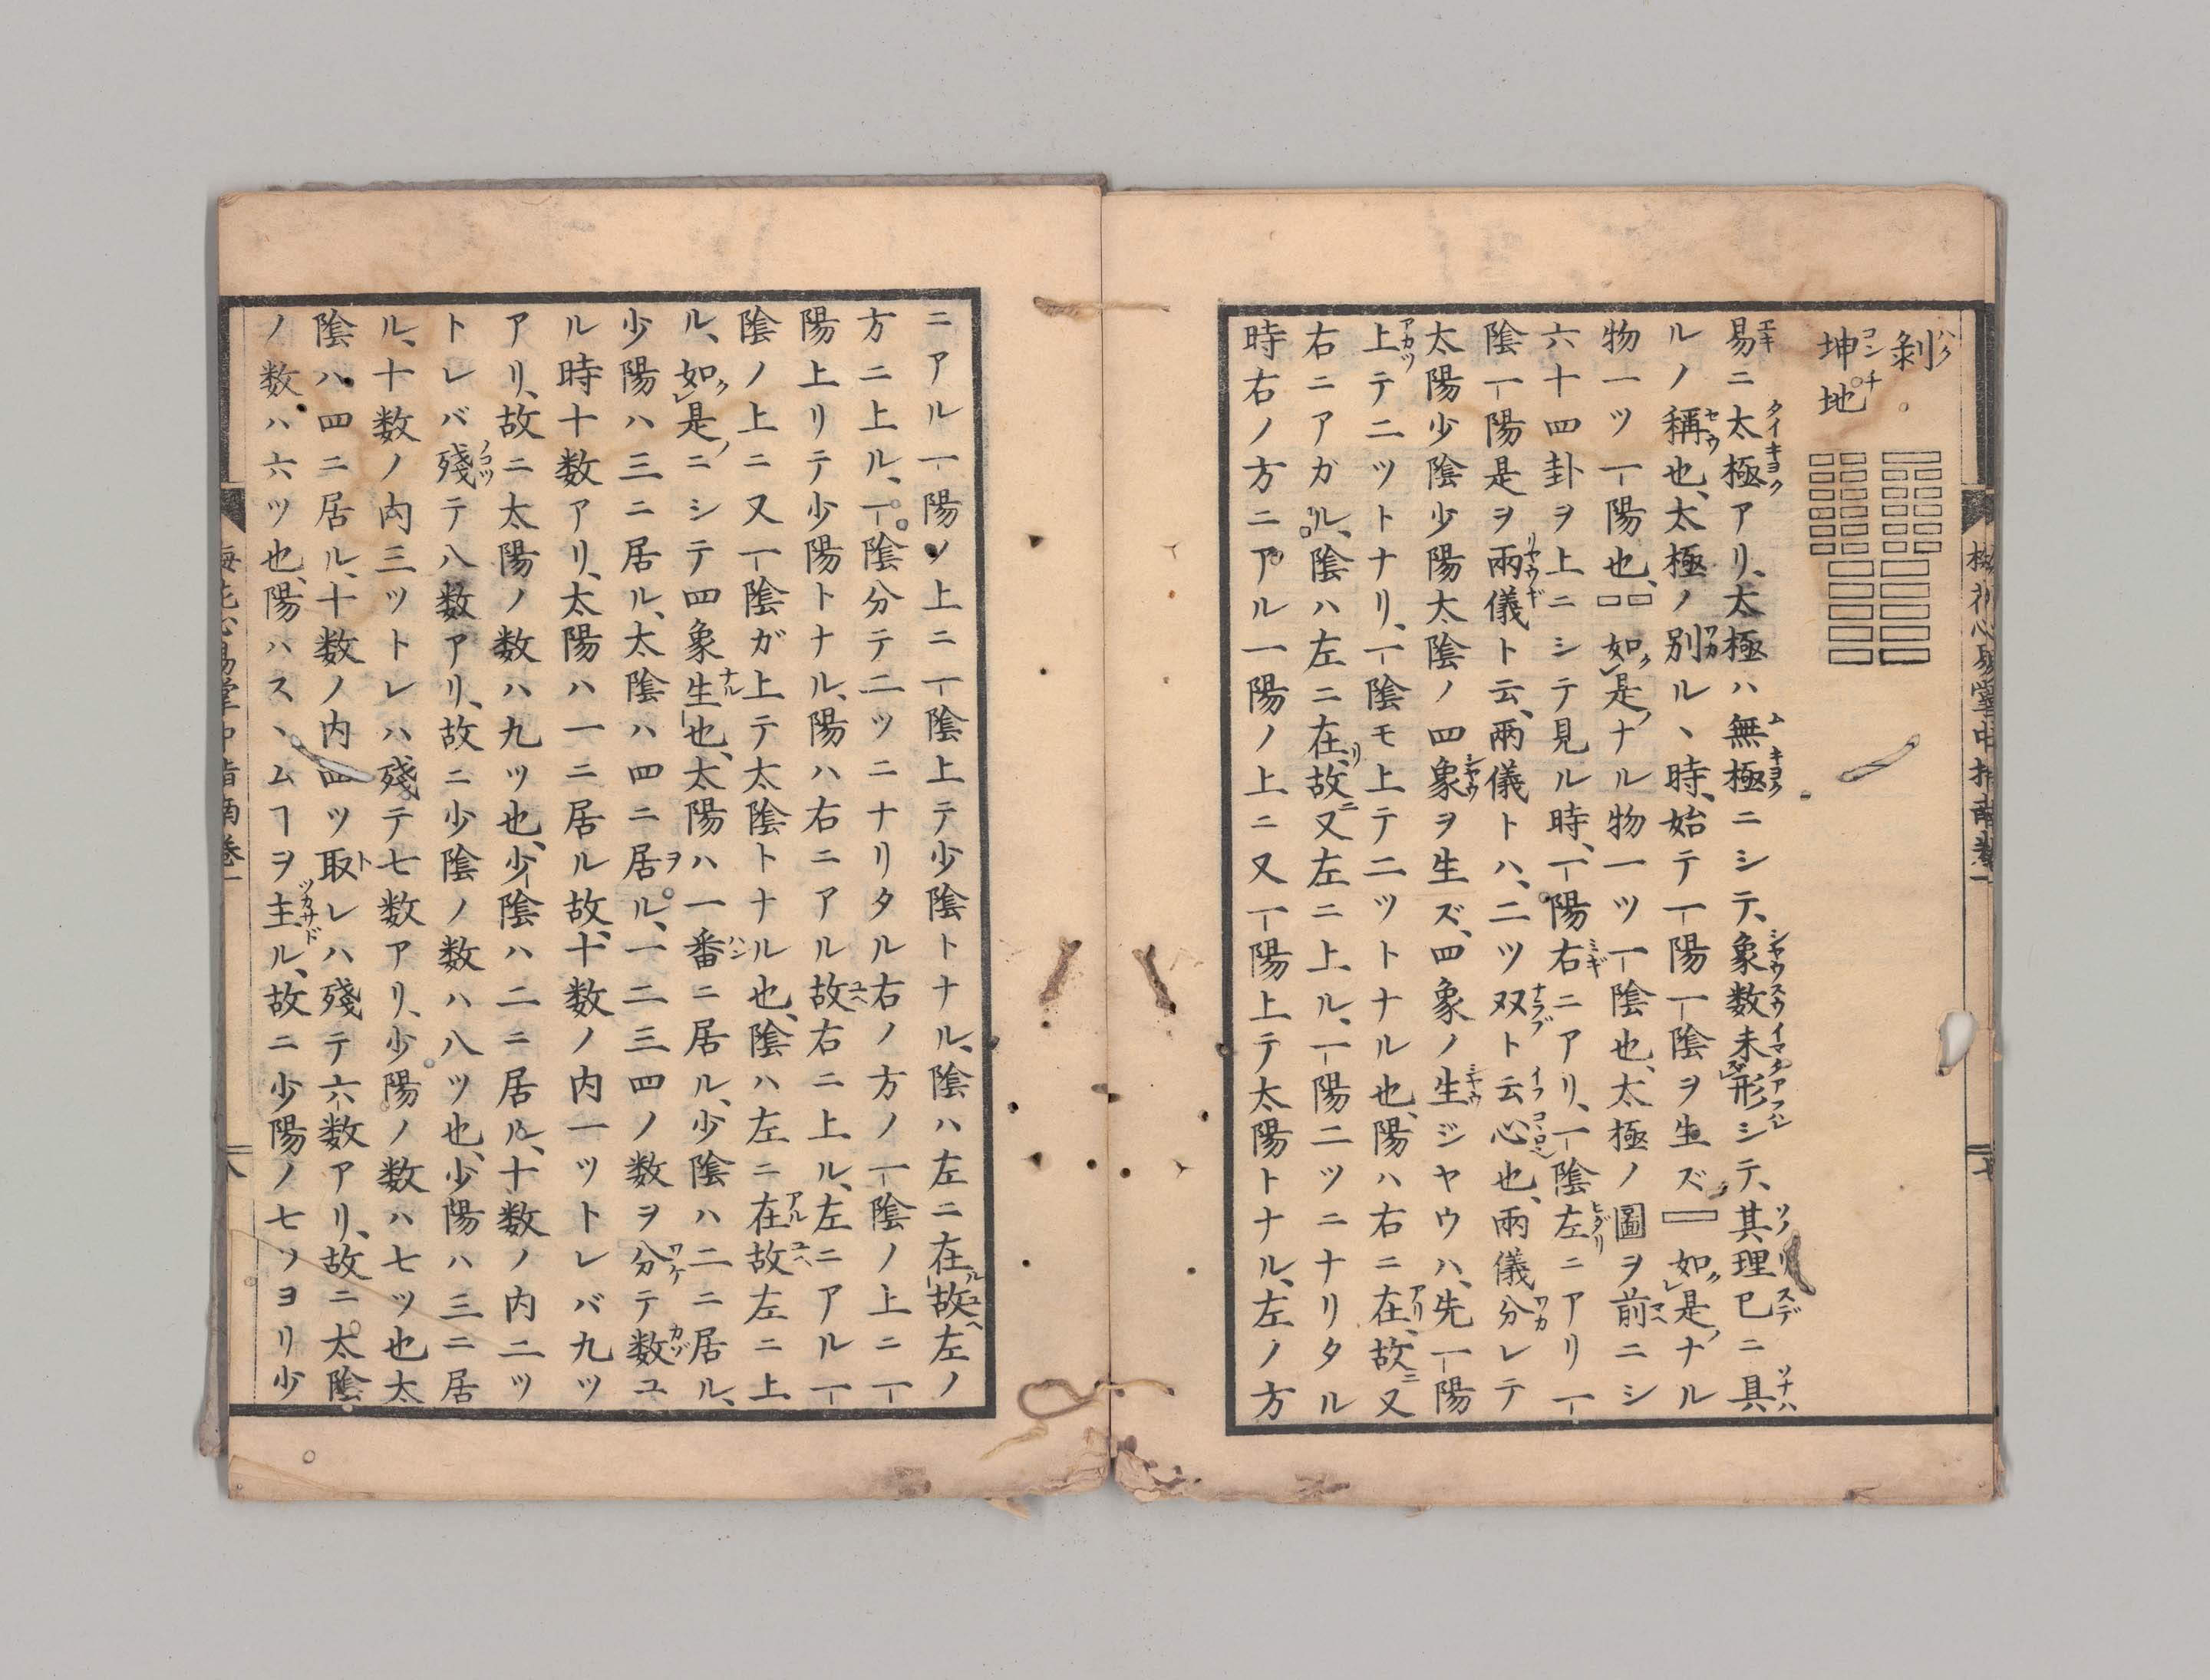 剝
坤地
易ニ太極アリ、太極ハ無極ニシテ、象数未形シテ、其理已ニ具
ルノ稱也、太極ノ別ル丶時、始テ一陽一陰ヲ生ズ 如是ナル
物一ツ一陽也、 如是ナル物一ツ一陰也、太極ノ圖ヲ前ニシ
六十四卦ヲ上ニシテ見ル時、一陽右ニアリ、一陰左ニアリ一
陰一陽是ヲ兩儀ト云、兩儀トハ、二ツ双ト云心也、兩儀分レテ
太陽少陰少陽太陰ノ四象ヲ生ズ、四象ノ生ジヤウハ、先一陽
上テ二ツトナリ、一陰モ上テ二ツトナル也、陽ハ右ニ在、故ニ又
右ニアガル、陰ハ左ニ在、故ニ又左ニ上ル、一陽二ツニナリタル
時右ノ方ニアル一陽ノ上ニ又一陽上テ太陽トナル、左ノ方
ニアル一陽ノ上ニ一陰上テ少陰トナル、陰ハ左ニ在故左ノ
方ニ上ル、一陰分テ二ツニナリタル右ノ方ノ一陰ノ上ニ一
陽上リテ少陽トナル、陽ハ右ニアル故右ニ上ル、左ニアル一
陰ノ上ニ又一陰ガ上テ太陰トナル也、陰ハ左ニ在故左ニ上
ル、如是ニシテ四象生也、太陽ハ一番ニ居ル、少陰ハ二ニ居ル、
少陽ハ三ニ居ル、太陰ハ四ニ居ル、一二三四ノ数ヲ分テ数ユ
ル時十数アリ、太陽ハ一ニ居ル故、十数ノ内一ツトレバ九ツ
アリ、故ニ太陽ノ数ハ九ツ也、少陰ハ二ニ居ル、十数ノ内二ツ
トレバ殘テ八数アリ、故ニ少陰ノ数ハ八ツ也、少陽ハ三ニ居
ル、十数ノ内三ツトレハ殘テ七数アリ、少陽ノ数ハ七ツ也太
陰ハ四ニ居ル、十数ノ内四ツ取レハ殘テ六数アリ、故ニ太陰
ノ数ハ六ツ也、陽ハスヽムヿヲ主ル、故ニ少陽ノ七ツヨリ少